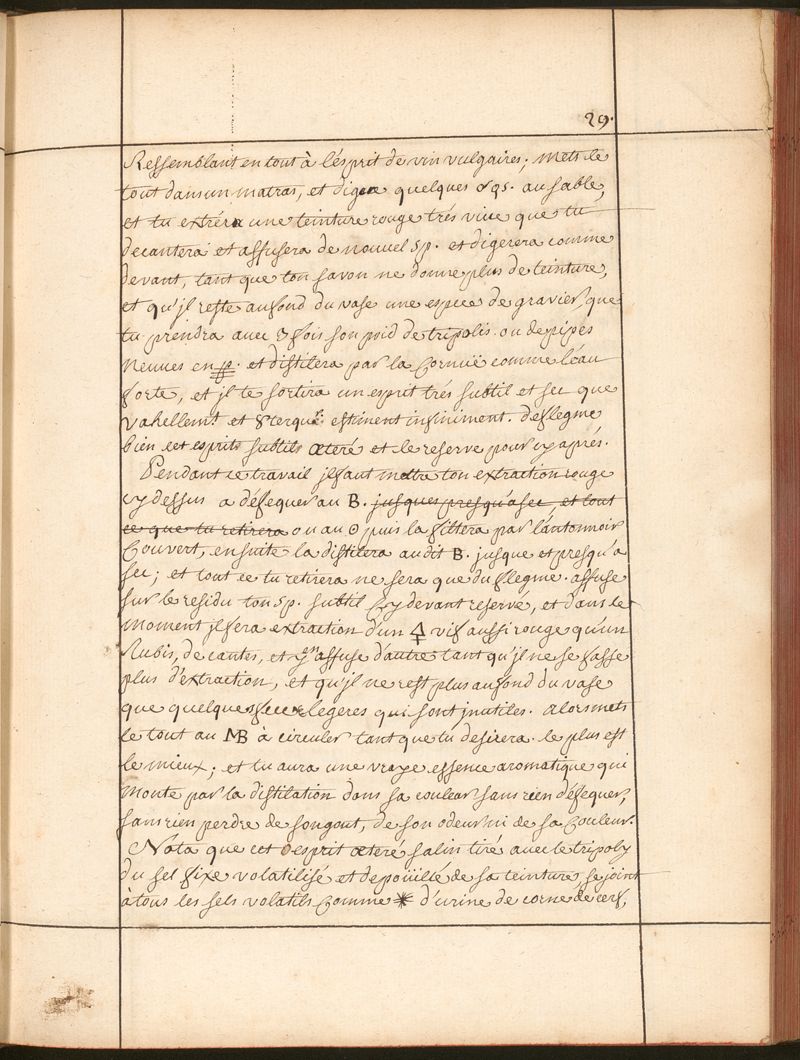 29.
Ressemblant en tout à l'esprit de vin vulgaires; mets le
tout dans un matras, et digera quelques au sable,
et tu extrera une teinture rouge trés vive que tu
decantera et affusera de nouvel sp. et digerera comme
devant, tant que ton savon ne donne plus de teinture,
et qu'jl reste au fond du vase une espece de gravier, que
tu prendra avec 3 fois son poid de tripolis. ou de pipes
neuves en et distilera par la Cornuë comme léau
forte, et jl te sortira un esprit trés subtil et sec que
et estiment infiniment. deflegme
bien cet esprits subtils æteré et le reserve pour cy aprés.
Pendant ce travail jl faut mettra ton extraction rouge
cy dessus a défequer au B. jusques presqu'a sec, et tout
ce que tu retirera ou au ⊙ puis la filtera par lántonnoir
Couvert, ensuite la distilera audit B. jusque et presqu'a
sec; et tout ce tu retirera ne sera que du flegme. affuse
sur le residu ton sp. subtil Cy devant reservé, et dans le
moment jl fera extraction d'un 🜍 vif aussi rouge qu'un
Rubis, decantes, et affuse d'autre tant qu'jl ne se fasse
plus d'extraction, et qu'jl ne rest plus au fond du vase
que quelques feces legeres qui sont jnutiles. alors mets
le tout au MB à circuler tant que tu desirera. le plus est
le mieux; et tu aura une vraye essence aromatique qui
monte par la distilation dans sa couleur sans rien défequer,
sans rien perdre de son gout, de son odeur ni de sa Couleur.
Nota que cet esprit æteré salin tiré avec le tripoly
du sel fixe volatilisé et depoüillé de sa teinture se joint
à tous les sels volatils Comme ✳ d'urine de corne de cerf,